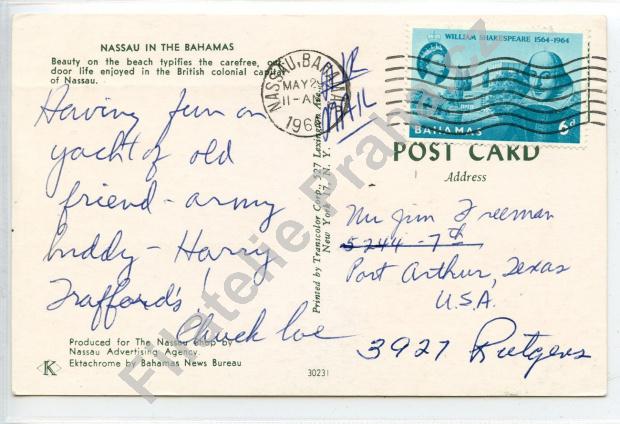 NASSAU IN THE BAHAMAS
Beauty on the beach typifies the carefree, out-
door life enjoyed in the British colonial capital
of Nassau.
Having fun on
yacht of old
friend - army
buddy - Harry
Trafford's!
Chuck
Produced for The Nassau Shop by
Nassau Advertising Agency.
Ektachrome by Bahamas News Bureau
K
30231
Printed by Transicolor Corp., 527 Lexington Ave.
New York 17, N. Y.
NASSAU, BAHAMAS
MAY 2
11-AM
196
AIR
MAIL
WILLIAM SHAKESPEARE 1564-1964
BAHAMAS 6d
POST CARD
Address
Mr Jim Freeman
5244 - 7th
Port Arthur, Texas
U.S.A.
3927 Rutgers
Filatelie Praha.cz